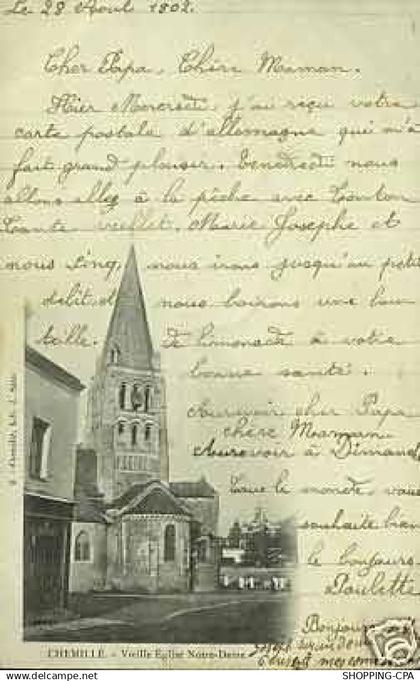 Le 28 Août 1902.
Cher Papa, Chère Maman.
Hier Mercredi j'ai reçu votre
carte postale d'allemagne qui m'a
fait grand plaisir. Vendredi nous
allons aller à la pêche avec Tonton
Tante Marie Josephe et
nous cinq, nous irons jusqu'au petit
nous boirons une bou
teille de limonade à votre
bonne santé.
Aurevoir cher Papa
chère Maman
Aurevoir à Dimanc
Tout le monde vous
souhaite bien
le bonjour.
Paulette
Bonjour
CHEMILLÉ. - Vieille Église Notre-Dame
www.shopping-cpa.com
© SHOPPING-CPA